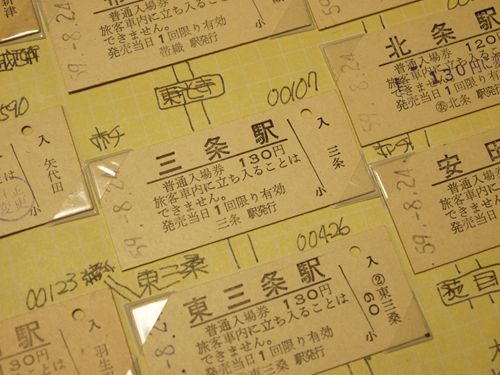 新津
59.-8.24
普通入場券
旅客車内に立ち入ることは
できません。
発売当日1回限り有効
帯織 駅発行
小
北条駅
120円
普通入場券
旅客車内に立ち入る
できません。
発売当日1回限り
北条 駅発行
130円
59.-8.24
東光寺
00107
590
入
矢代田
小
三条駅
130円
普通入場券
旅客車内に立ち入ることは
できません。
発売当日1回限り有効
三条 駅発行
入
三条
小
59.-8.24
安田
普通入場券
旅客車内に立ち
できません。
発売当日1回
59.-8.24
00426
00123
東三条
駅
入
羽生
東三条駅
130円
普通入場券
旅客車内に立ち入ることは
できません。
発売当日1回限り有効
東三条 駅発行
入
②東三条
60
小
-8.2